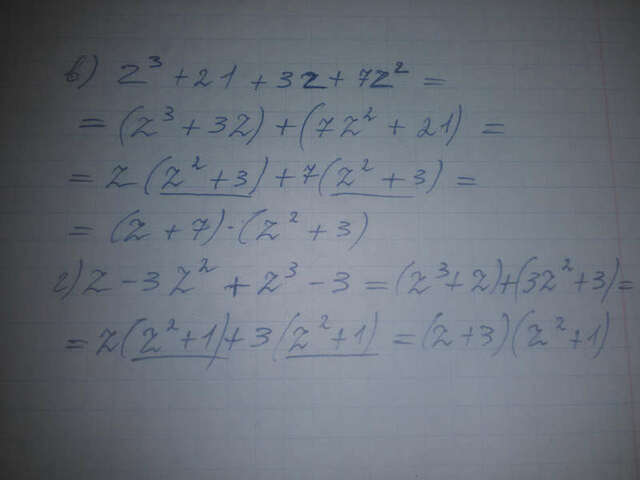 в) z³ + 21 + 3z + 7z² =
= (z³ + 3z) + (7z² + 21) =
= z (z² + 3) + 7 (z² + 3) =
= (z + 7) · (z² + 3)
г) z - 3z² + z³ - 3 = (z³ + z) + (3z² + 3) =
= z (z² + 1) + 3 (z² + 1) = (z + 3) (z² + 1)